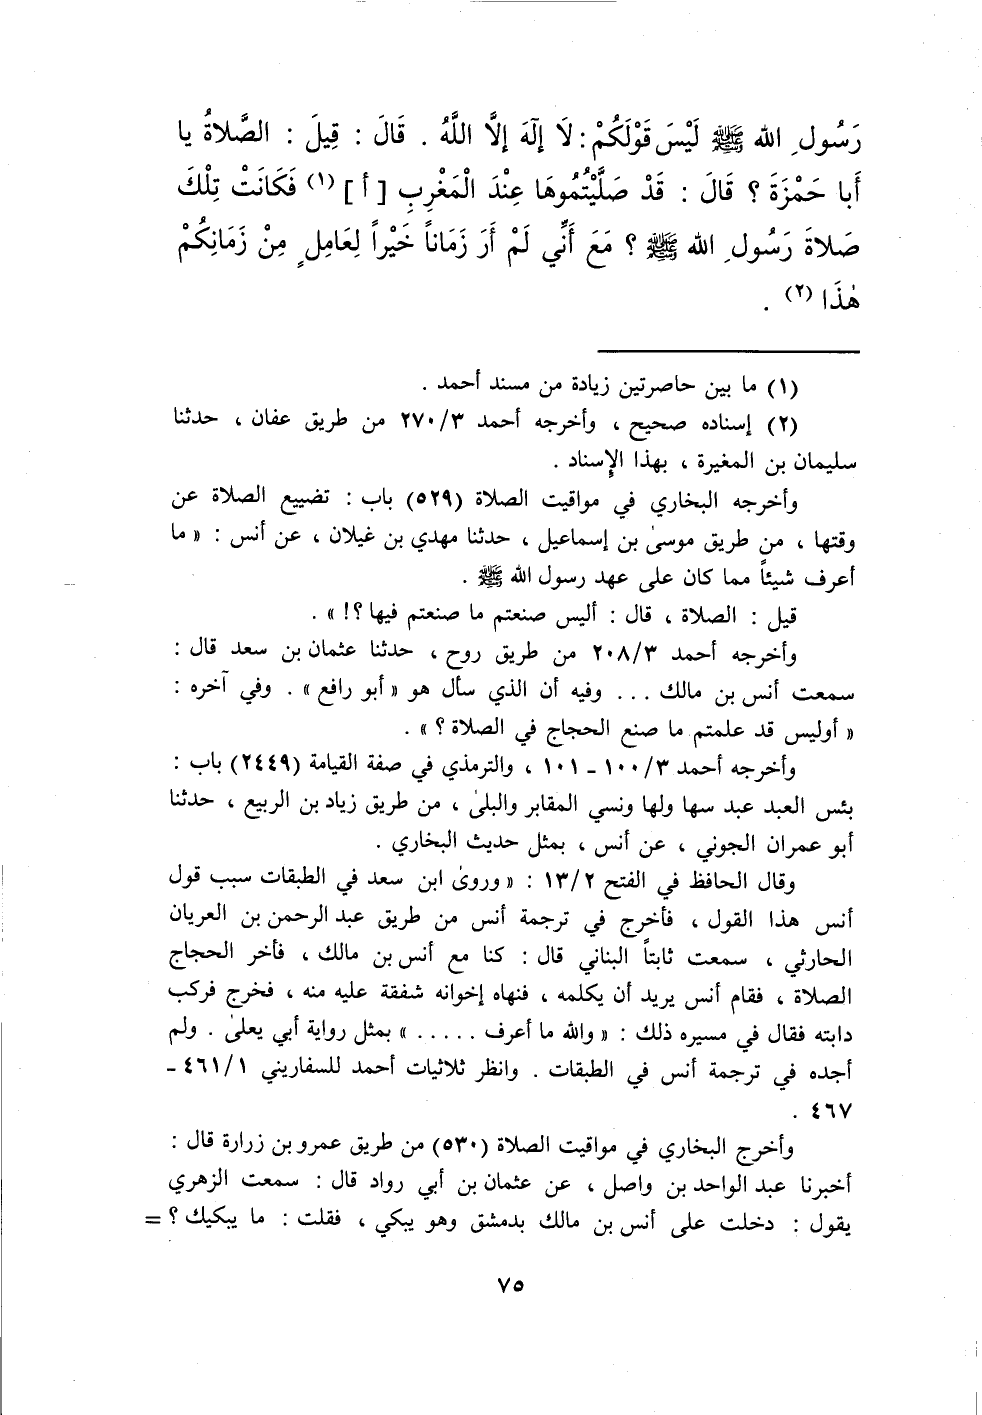 رَسُولِ الله ﷺ لَيْسَ قَوْلَكُمْ : لَا إِلَهَ إِلَّا اللَّهُ . قَالَ : قِيلَ : الصَّلَاةُ يا
أَبا حَمْزَةَ ؟ قَالَ : قَدْ صَلَّيْتُمُوهَا عِنْدَ الْمَغْرِبِ [ أ ] (١) فَكَانَتْ تِلْكَ
صَلاةَ رَسُولِ الله ﷺ ؟ مَعَ أَنِّي لَمْ أَرَ زَمَاناً خَيْراً لِعَامِلٍ مِنْ زَمَانِكُمْ
هٰذَا (٢) .
(١) ما بين حاصرتين زيادة من مسند أحمد .
(٢) إسناده صحيح ، وأخرجه أحمد ٢٧٠/٣ من طريق عفان ، حدثنا
سليمان بن المغيرة ، بهذا الإسناد .
وأخرجه البخاري في مواقيت الصلاة (٥٢٩) باب : تضييع الصلاة عن
وقتها ، من طريق موسىٰ بن إسماعيل ، حدثنا مهدي بن غيلان ، عن أنس : « ما
أعرف شيئاً مما كان على عهد رسول الله ﷺ .
قيل : الصلاة ، قال : أليس صنعتم ما صنعتم فيها ؟! » .
وأخرجه أحمد ٢٠٨/٣ من طريق روح ، حدثنا عثمان بن سعد قال :
سمعت أنس بن مالك ... وفيه أن الذي سأل هو « أبو رافع » . وفي آخره :
« أوليس قد علمتم ما صنع الحجاج في الصلاة ؟ » .
وأخرجه أحمد ١٠٠/٣ - ١٠١ ، والترمذي في صفة القيامة (٢٤٤٩) باب :
بئس العبد عبد سها ولها ونسي المقابر والبلىٰ ، من طريق زياد بن الربيع ، حدثنا
أبو عمران الجوني ، عن أنس ، بمثل حديث البخاري .
وقال الحافظ في الفتح ١٣/٢ : « وروىٰ ابن سعد في الطبقات سبب قول
أنس هذا القول ، فأخرج في ترجمة أنس من طريق عبد الرحمن بن العريان
الحارثي ، سمعت ثابتاً البناني قال : كنا مع أنس بن مالك ، فأخر الحجاج
الصلاة ، فقام أنس يريد أن يكلمه ، فنهاه إخوانه شفقة عليه منه ، فخرج فركب
دابته فقال في مسيره ذلك : « والله ما أعرف ..... » بمثل رواية أبي يعلىٰ . ولم
أجده في ترجمة أنس في الطبقات . وانظر ثلاثيات أحمد للسفاريني ٤٦١/١ -
٤٦٧ .
وأخرج البخاري في مواقيت الصلاة (٥٣٠) من طريق عمرو بن زرارة قال :
أخبرنا عبد الواحد بن واصل ، عن عثمان بن أبي رواد قال : سمعت الزهري
يقول : دخلت على أنس بن مالك بدمشق وهو يبكي ، فقلت : ما يبكيك ؟ =
٧٥